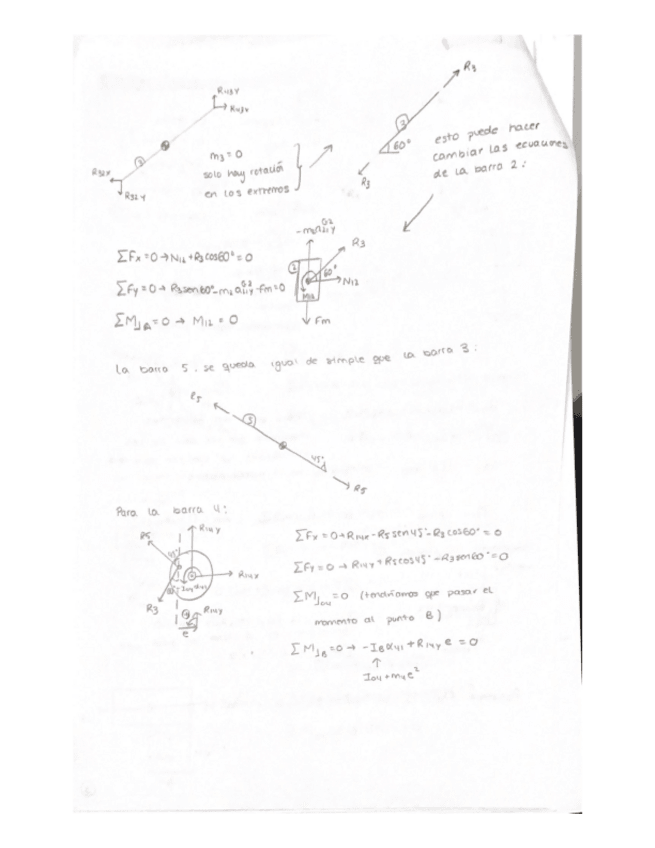 R43Y
R43X
3
R32X
R32Y
m3 = 0
solo hay rotación
en los extremos
R3
3
60°
R3
esto puede hacer
cambiar las ecuaciones
de la barra 2:
ΣFx=0 → N12 + R3 cos60° = 0
ΣFy=0 → R3 sen60° - m2 a21y - Fm = 0
ΣM]A=0 → M12 = 0
R3
2
60°
N12
M12
Fm
La barra 5, se queda igual de simple que la barra 3:
R5
5
45°
R5
Para la barra 4:
R5
R14Y
45°
R14X
R3
R14Y
e
ΣFx = 0 → R14x - R5 sen45° - R3 cos60° = 0
ΣFy = 0 → R14y + R5 cos45° - R3 sen60° = 0
ΣM]O4 = 0 (tendríamos que pasar el
momento al punto B)
ΣM]B = 0 → -IB α41 + R14y e = 0
↑
IO4 + m4e²